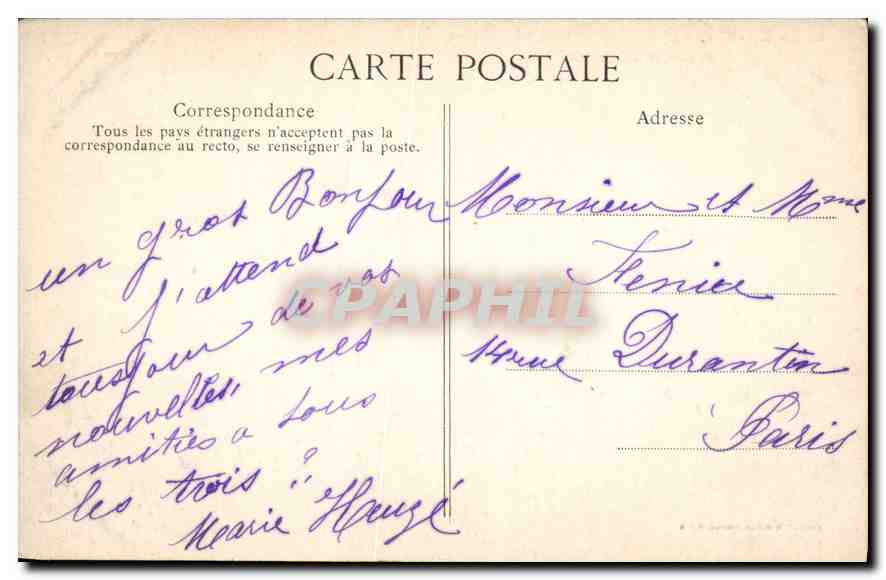 CARTE POSTALE
Correspondance
Tous les pays étrangers n'acceptent pas la
correspondance au recto, se renseigner à la poste.
un gros Bonjour
et j'attend
tousjour de vos
nouvelles, mes
amitiés a tous
les trois
Marie Hauzé
Adresse
Monsieur et Mme
14 rue Durantin
Paris
CPAPHIL